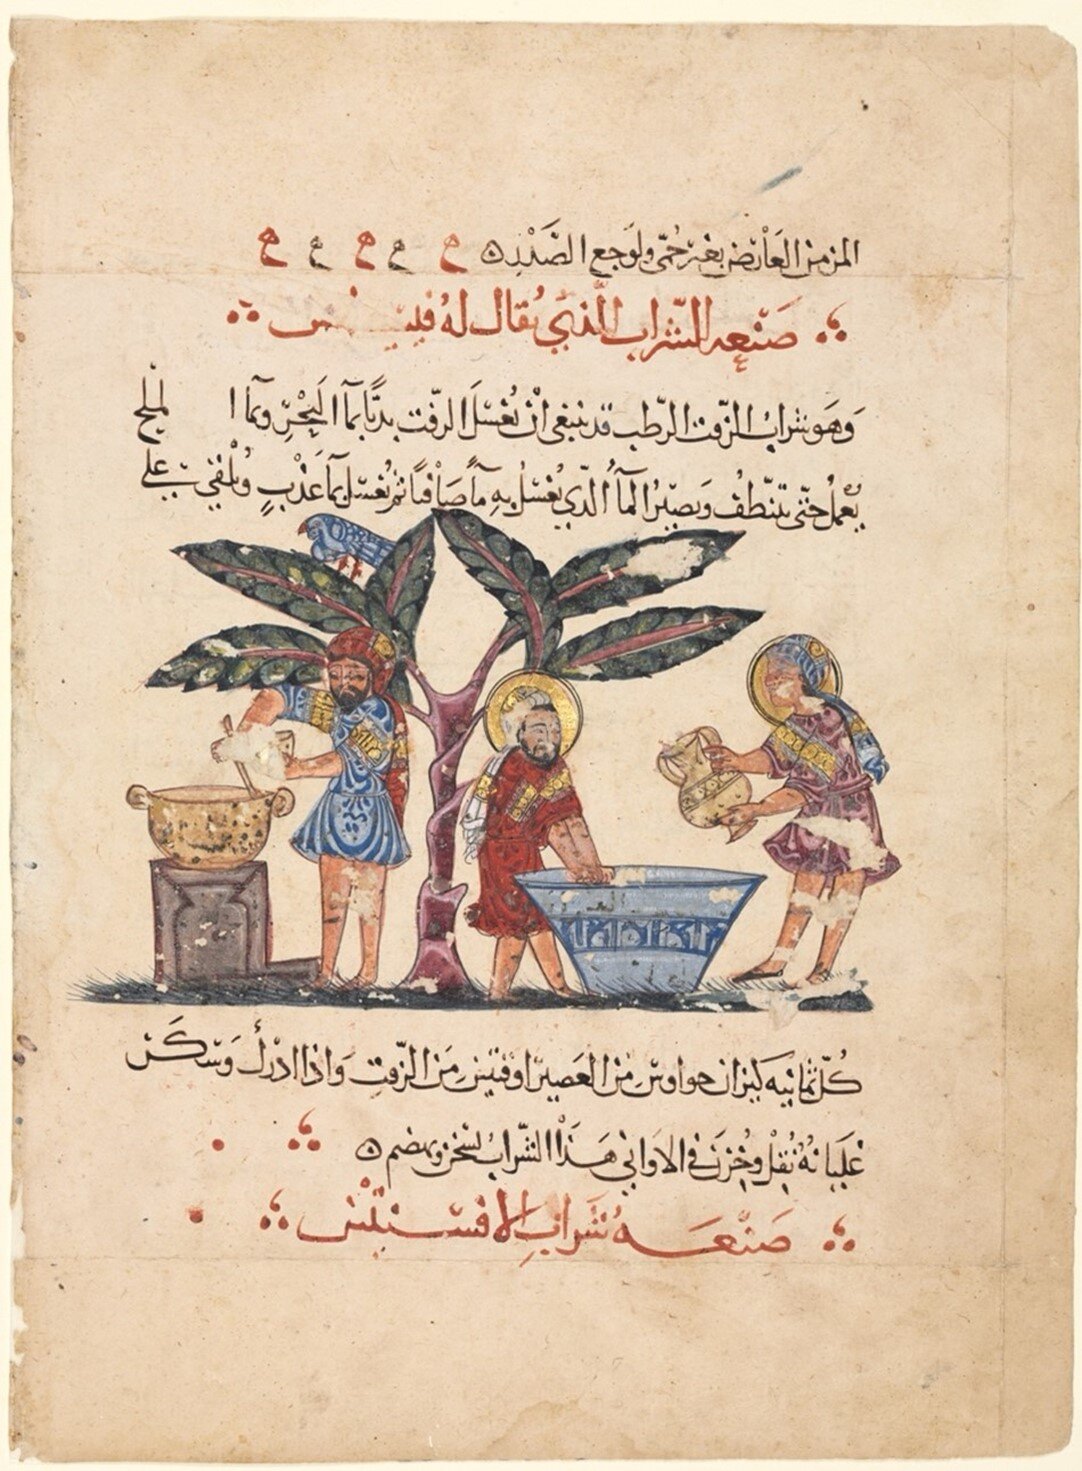 المزمن العارض بغير حمّى ولوجع الصّدر ه
صنعه الشّراب الّذي يُقال لهُ
وَهَو شراب الزّفت الرّطب قد ينبغي انْ يُغسَل الزّفت بديّا بمآ البَحْر وبمآ الملح
يُعمل حتّى يتنظف وَيصيّر المآ الّذي يُغسَل بِهِ مآ صَافيا ثم يُغسَل بمآ عَذْبٍ ويُلقي على
كلّ ثمانيه من العَصير اوقيتين مَن الزّفتِ وَاذا ادرَك وَسَكن
غليانُهُ نُقِل وخُزن في الاواني هَذا الشّراب يسخن ويهضم ه
صَنعَه شَراب الافسنتين